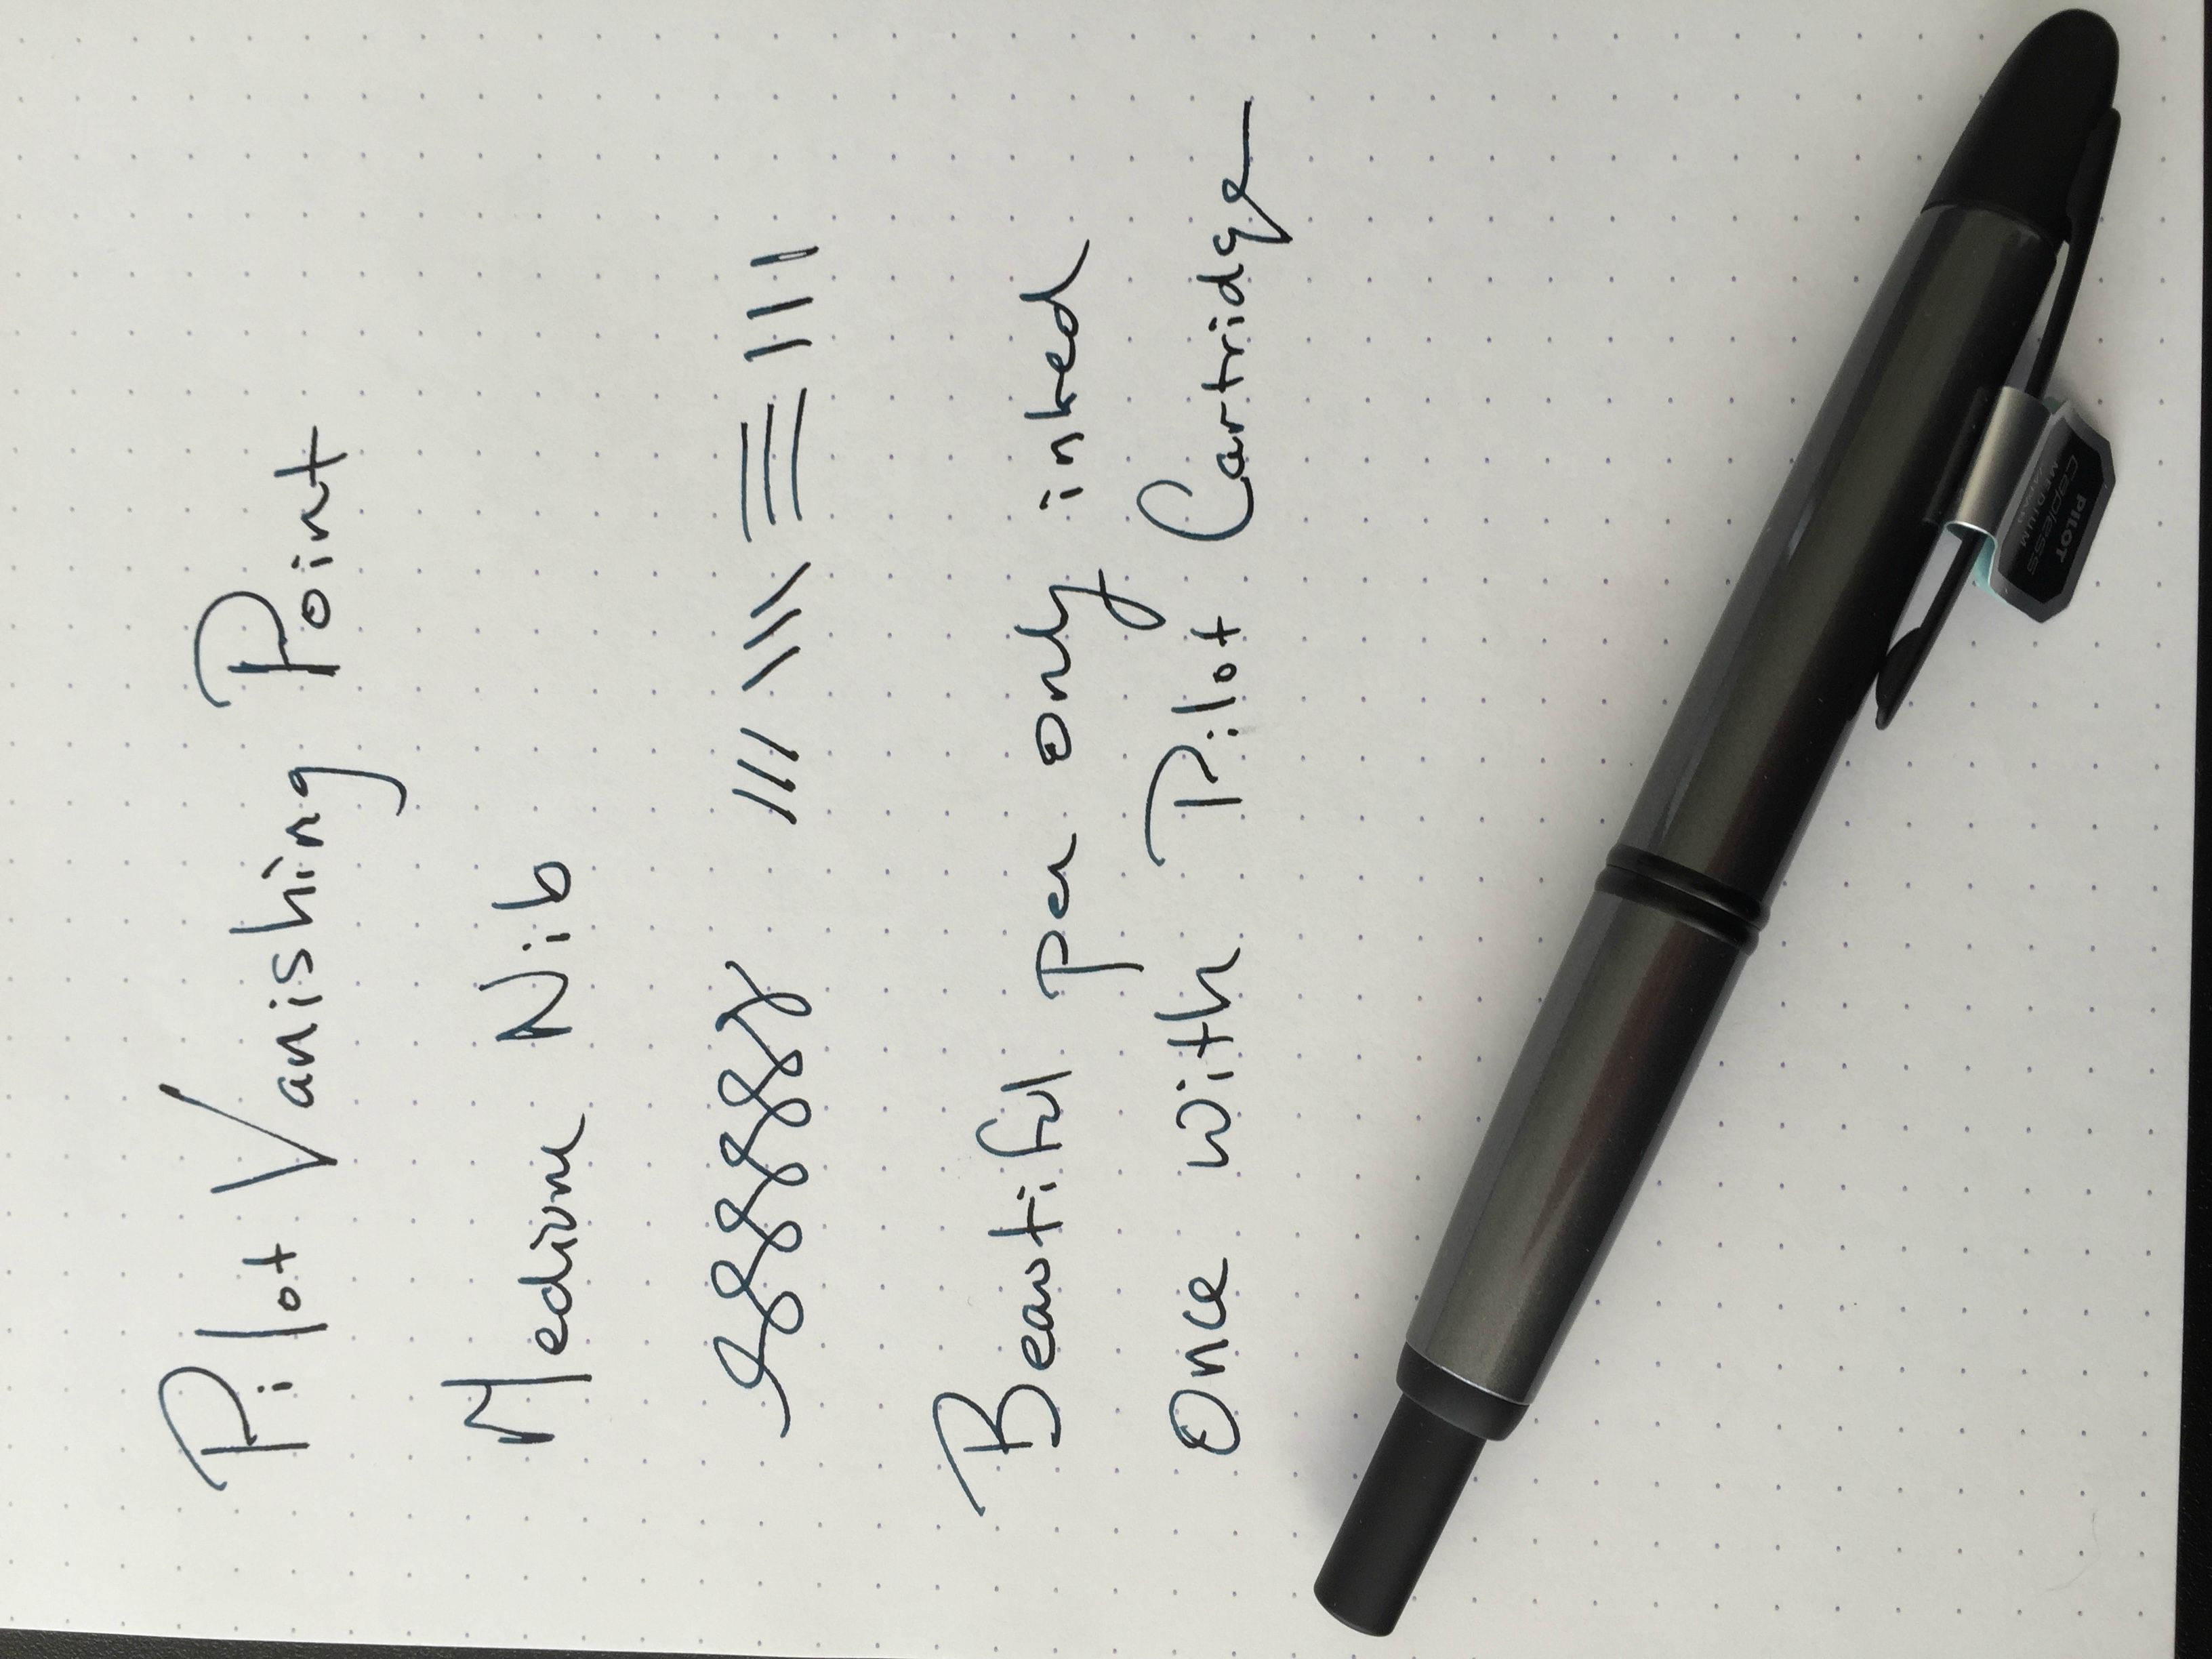 Pilot Vanishing Point
Medium Nib
Beautiful pen only inked
Once with Pilot Cartridge
PILOT
Capless
MEDIUM